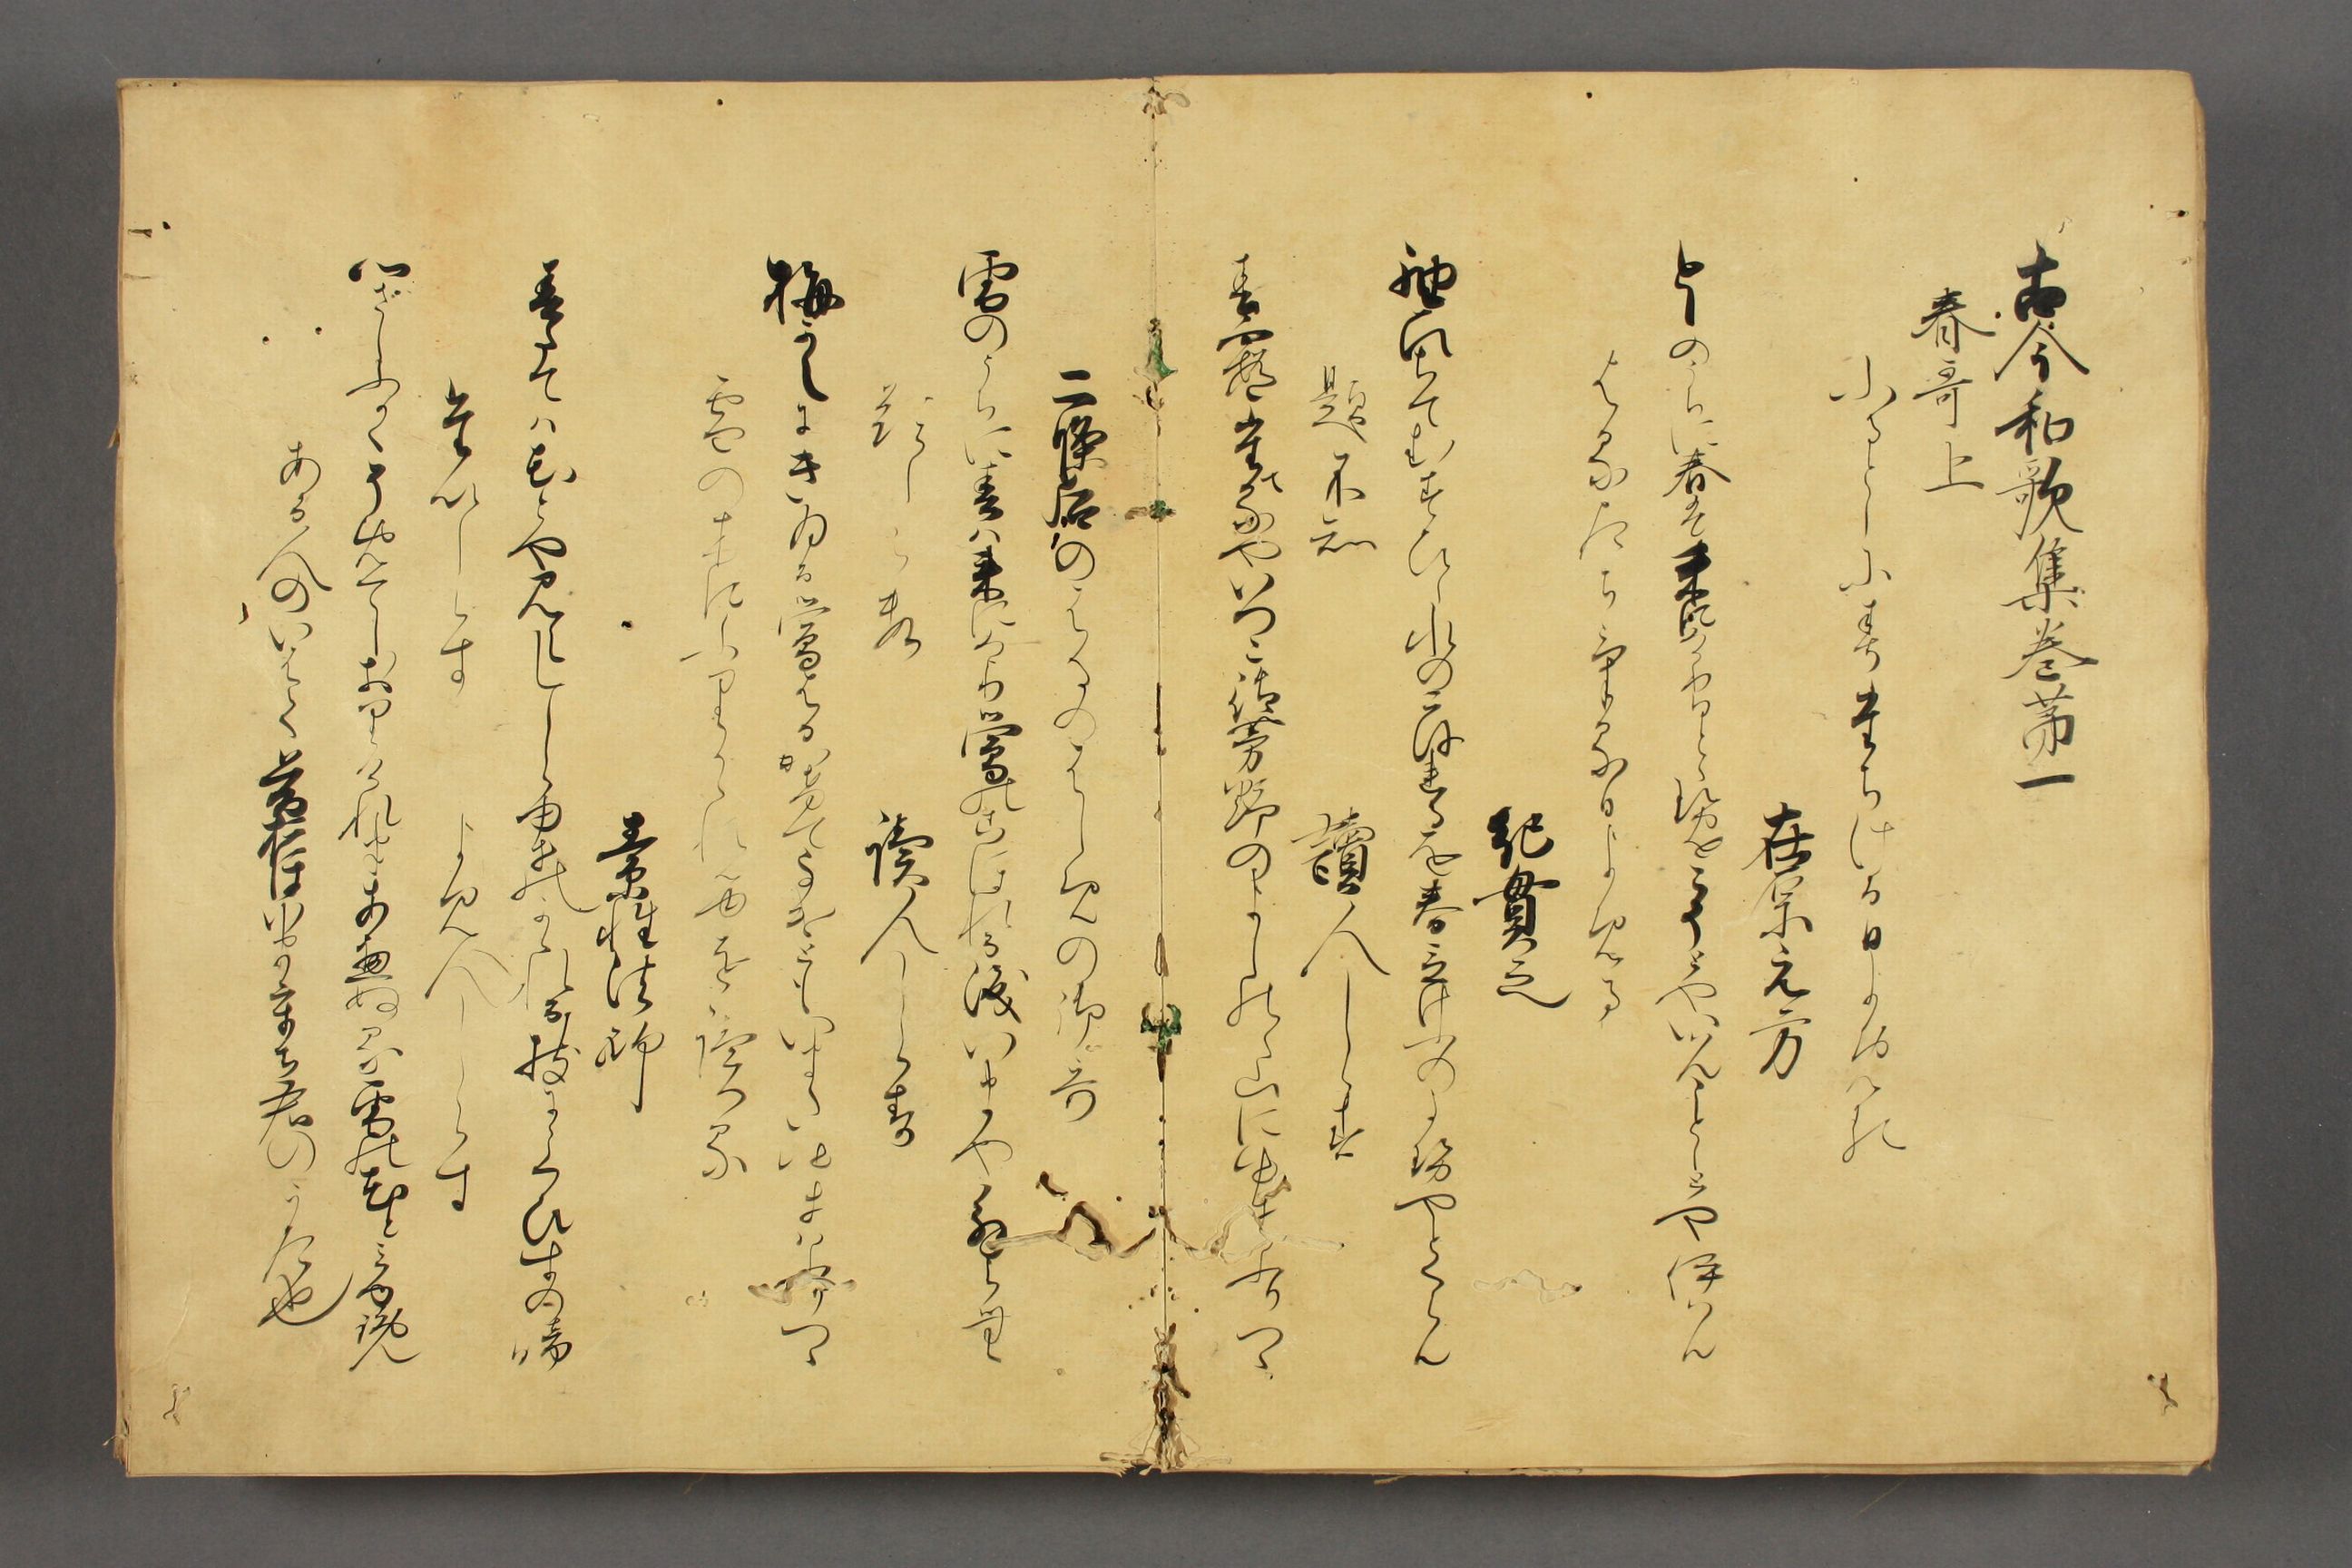 古今和歌集巻第一
春哥上
ふるとしに春たちける日よめる
在原元方
としのうちに春はきにけりひとゝせをこそとやいはんことしとや伊はん
はるたちける日よめる
紀貫之
袖ひちてむすひし水のこほれるを春立けふの風やとくらん
題不知
讀人しらす
春霞たてるやいつこみよし野のよしのゝ山に雪はふりつゝ
二條后のはるのはしめの御哥
雪のうちに春は来にけり鶯のこほれる涙いまやとくらむ
題しらす
讀人しらす
梅かえにきゐる鶯はるかけてなけともいまた雪はふりつゝ
雪の木にふりかゝれるを讀る
素性法師
春たては花とや見らむしら雪のかゝれる枝にうくひすの啼
題しらす
よみ人しらす
心さしふかくそめてしおりけれはきえあへぬ雪の花と見ゆ覧
ある人のいはくさきのおほきおほいまうち君のうた也